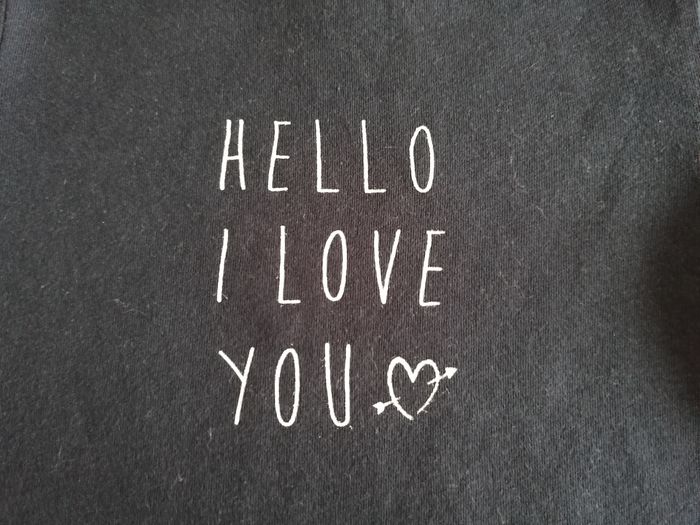 HELLO
I LOVE
YOU